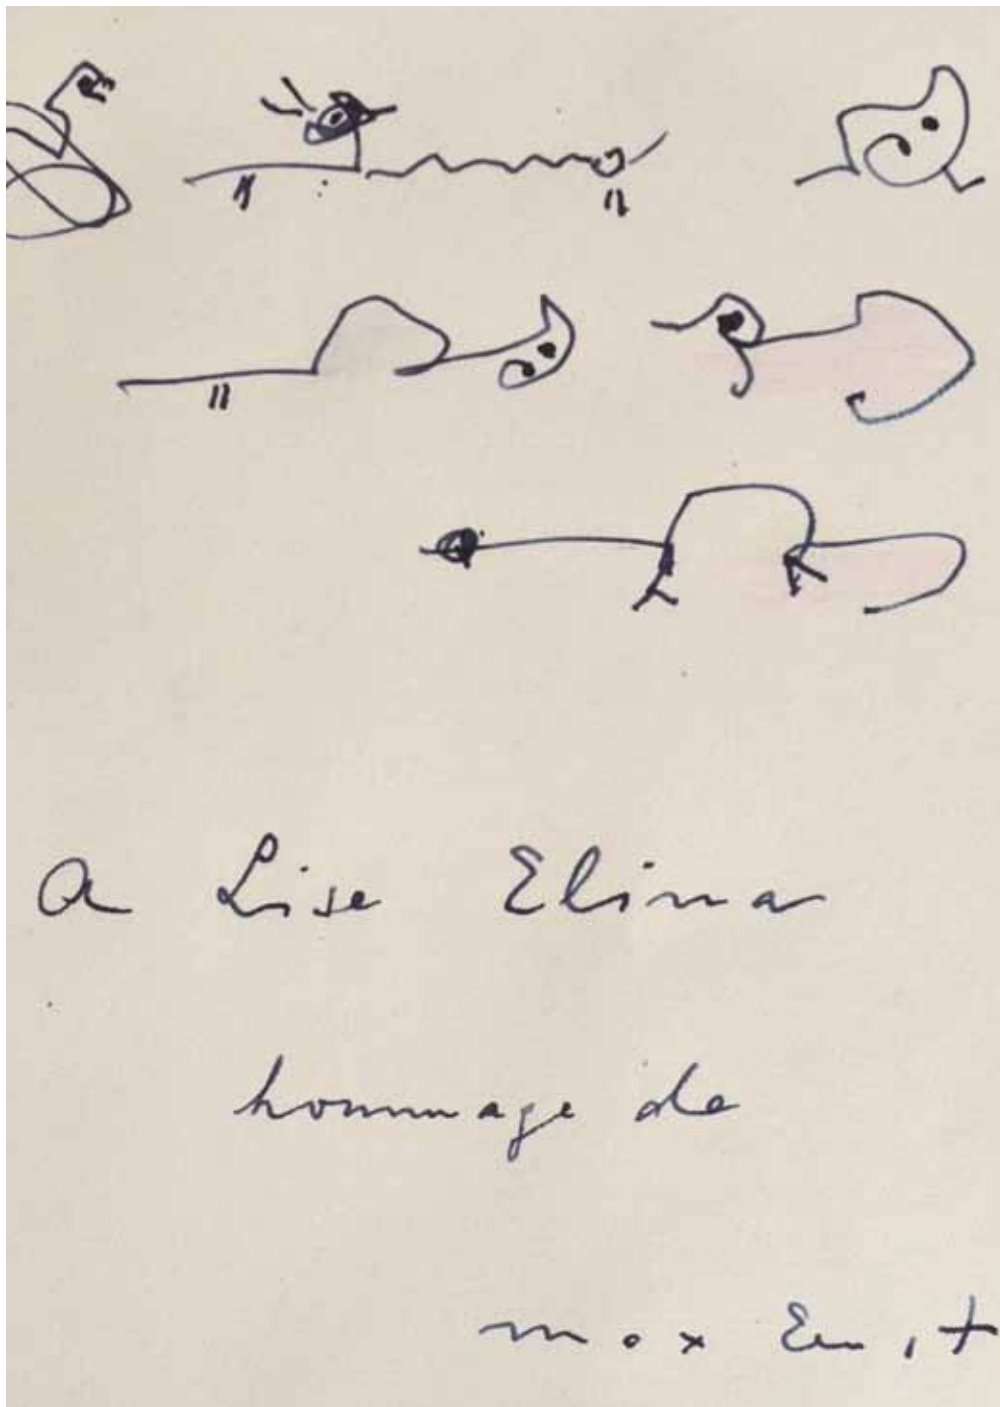 A Lise Elina
hommage de
max Ernst